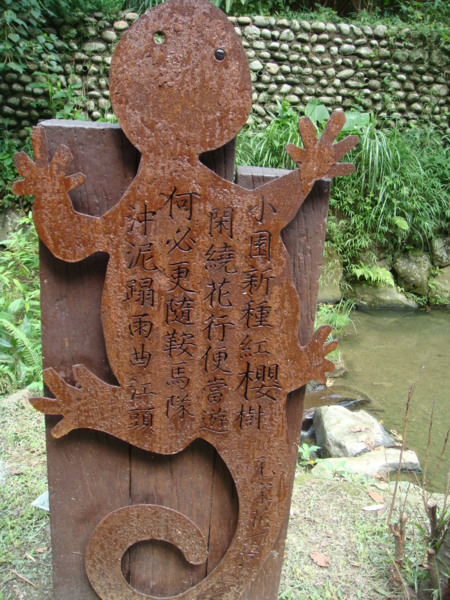 小園新種紅櫻樹
閑繞花行便當遊
何必更隨鞍馬隊
沖泥蹋雨曲江頭